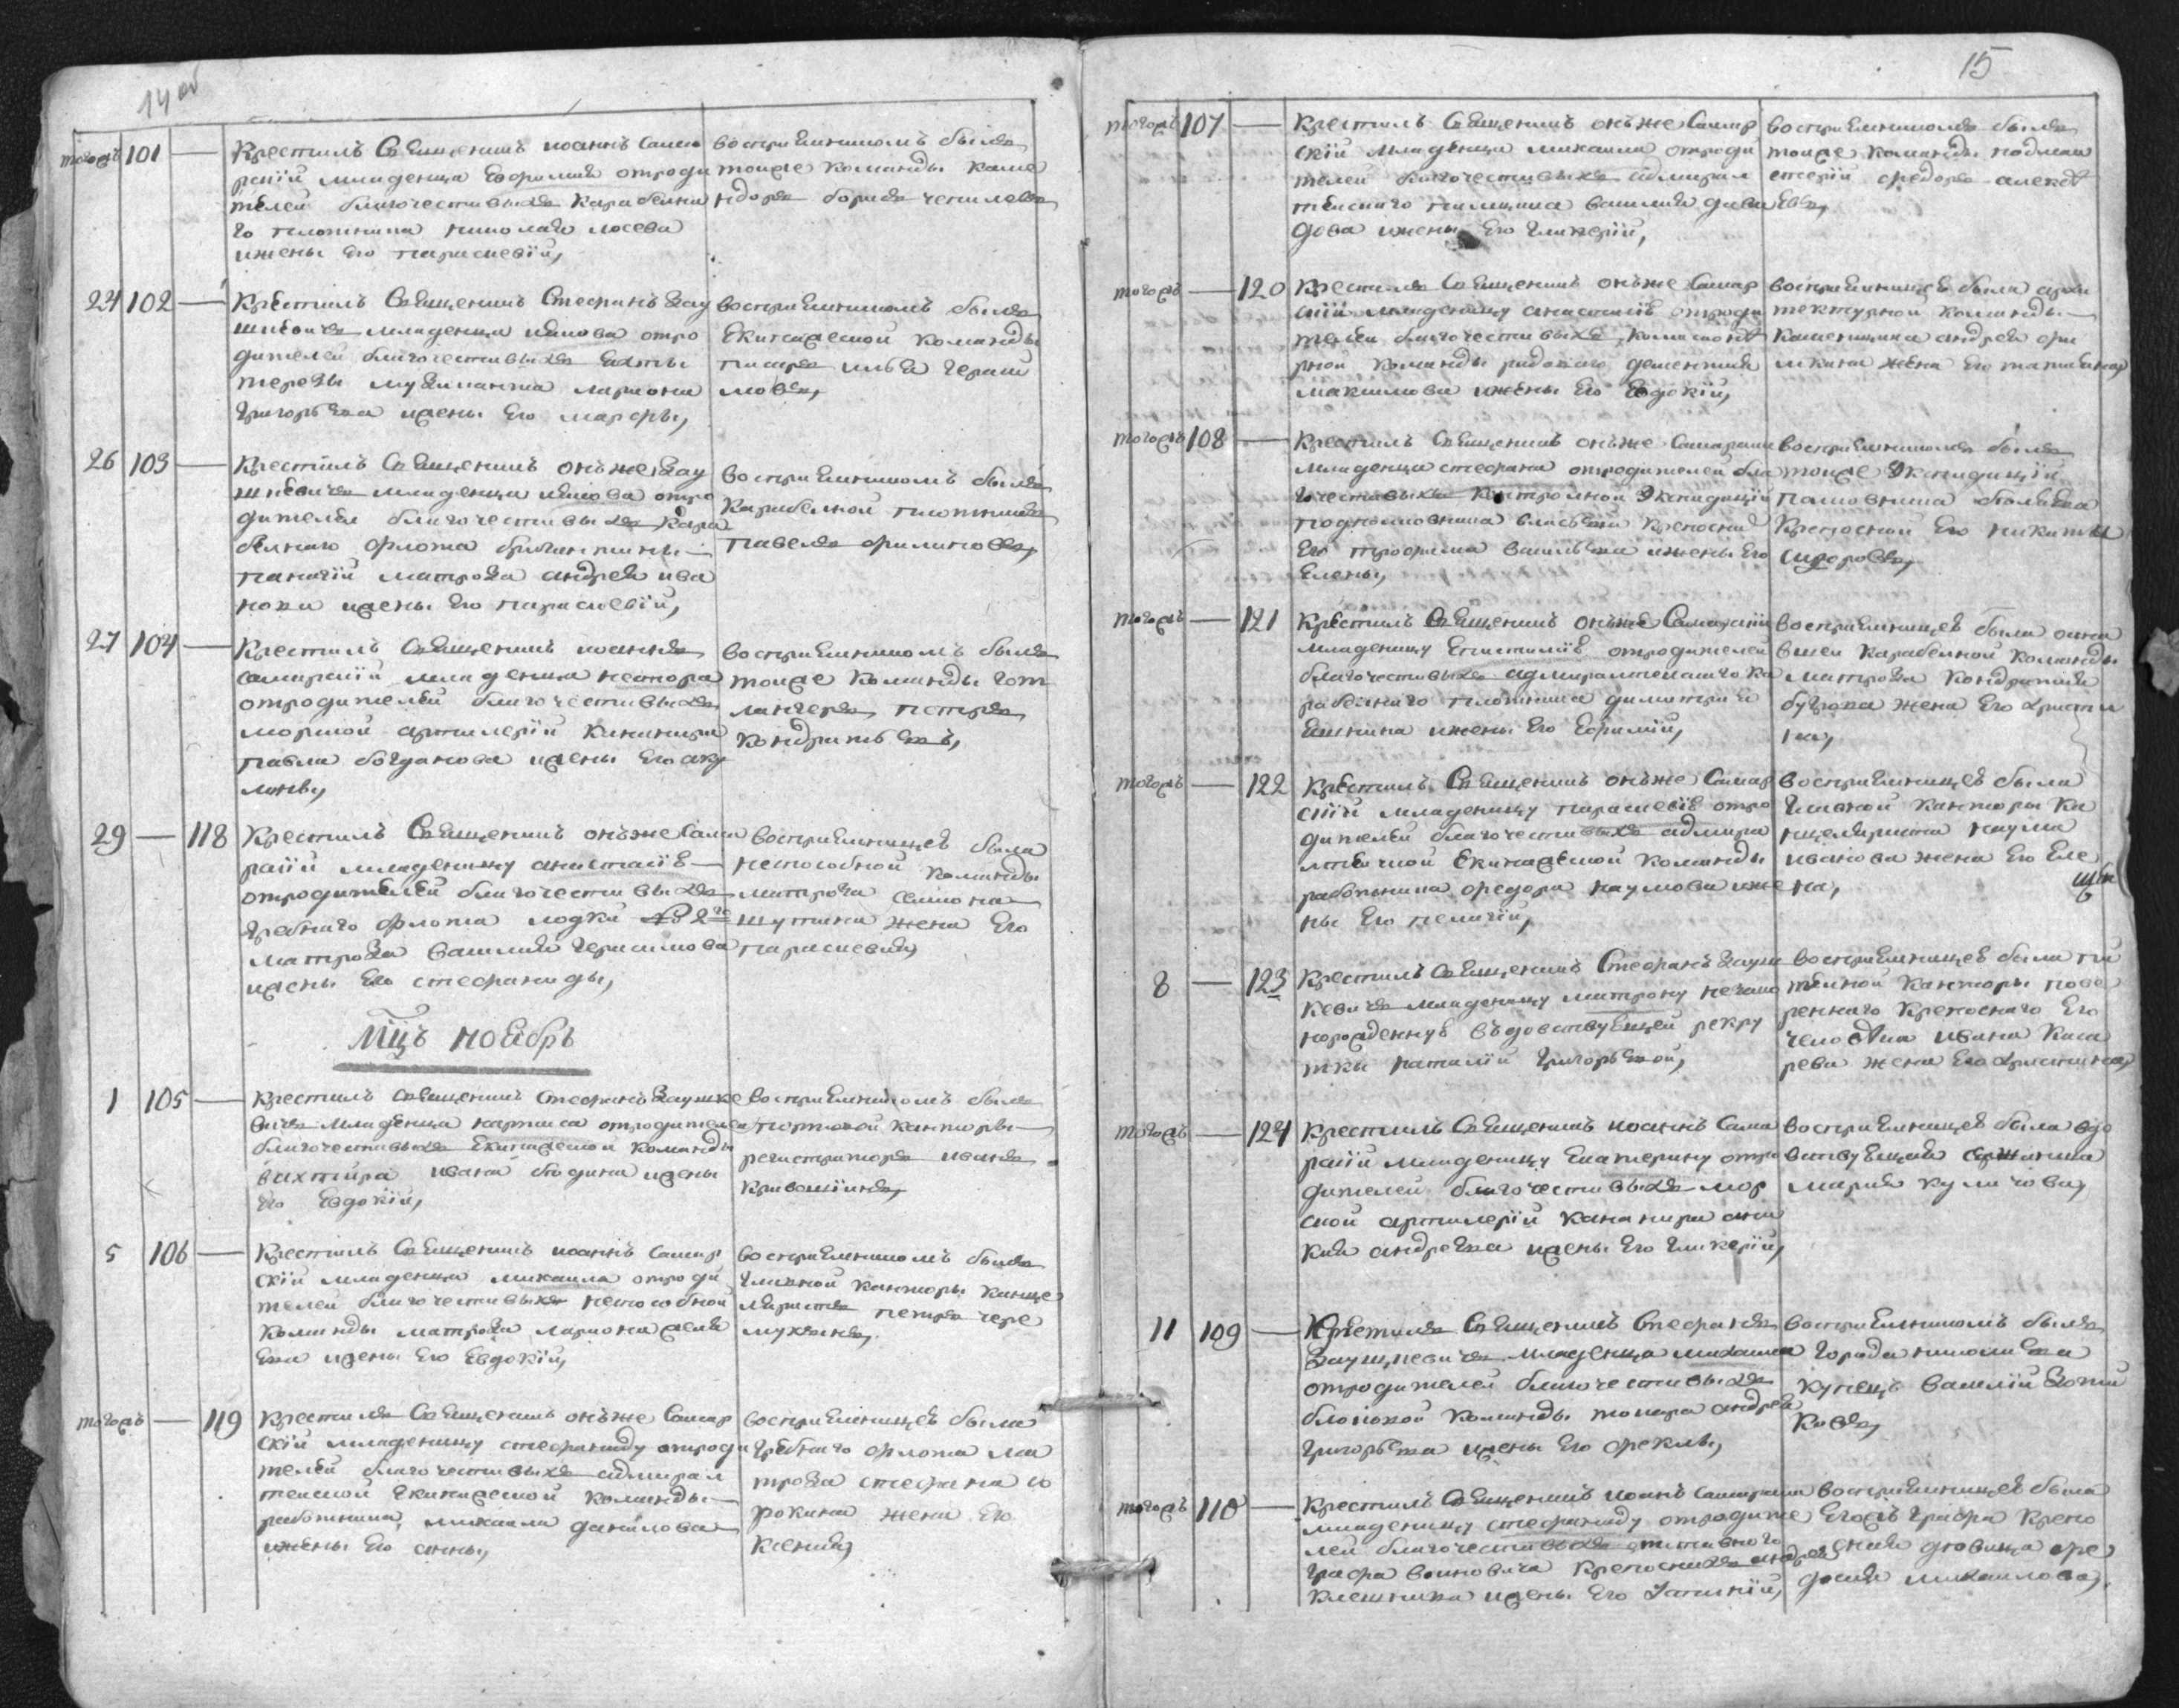 14 об
тогожъ 101 — Крестилъ Священникъ иоаннъ Сама
рскiй младенца Ефимия отроди
телей благочестивыхъ карабелна
го плотника николая лосева
ижены Его параскевiи,
воспрiемникомъ былъ
тоиже команды кома
ндоръ борисъ
24 102 — Крестилъ Священникъ Стефанъ Зау
шкевичъ младенца иякова отро
дителей благочестивыхъ яхты
терезы музиканта лариона
григорьева ижены Его марфы,
воспрiемникомъ былъ
Екипажеской команды
писарь илья гераси
мовъ,
26 103 — Крестилъ Священникъ онъже Зау
шкевичъ младенца иякова отро
дителей благочестивыхъ кара
белнаго флота бригантины —
панагiи матроза андрея ива
нова ижены Его параскевiи,
воспрiемникомъ былъ
Карабелной плотникъ
павелъ филиповъ,
27 104 — Крестилъ Священникъ иоаннъ
самарскiй младенца нестора
отродителей благочестивыхъ
морской артилерiи Канонира
павла богданова ижены Его аку
лины,
воспрiемникомъ былъ
тоиже команды гот
лангеръ петръ
Кондратьевъ,
29 — 118 Крестилъ Священникъ онъже Сама
рскiй младеницу анастасiю —
отродителей благочестивыхъ
гребнаго флота лодки № 2го
матроза василия герасимова
ижены Его стефаниды,
воспрiемницею была
неспособной команды
матроза симона
шутина жена Его
параскевия,
Мцъ ноябрь
1 105 — Крестилъ Священникъ Стефанъ Заушке
вичъ младенца карпа отродителей
благочестивыхъ Екипажеской команды
вахтира ивана бодина ижены
Его Евдокiи,
воспрiемникомъ былъ
портовой канторы —
регистраторъ иванъ
кривошiинъ,
5 106 — Крестилъ Священникъ иоаннъ самар
скiй младенца михаила отроди
телей благочестивыхъ неспособной
команды матроза лариона
ижены Его Евдокiи,
воспрiемникомъ былъ
главной канторы канце
ляристъ петръ чере
мухинъ,
тогожъ — 119 Крестилъ Священникъ онъже Самар
скiй младеницу стефаниду отроди
телей благочестивыхъ адмирал
тейской екипажеской команды —
работника михаила данилова
ижены Его анны,
воспрiемницею была
гребнаго флота ма
троза стефана со
рокина жена Его
Ксения,
15
тогожъ 107 — Крестилъ Священникъ онъже Самар
скiй младенца михаила отроди
телей благочестивыхъ адмирал
тейскаго пилщика василия дави
дова ижены Его гликерiи,
воспрiемникомъ былъ
тоиже команды подмас
терiй федоръ алексе
евъ,
тогожъ — 120 Крестилъ Священникъ онъже Самар
скiй младеницу анастасiю отроди
телей благочестивыхъ
рной команды рядоваго дементия
максимова ижены Его Евдокiи,
воспрiемницею была архи
тектурной команды —
каменщика андрея
жена Его татияна,
тогожъ 108 — Крестилъ Священникъ онъже Самарски
младенца стефана отродителей бла
гочестивыхъ контролной Экспедицiи
подполковника крепоснаго
Его трофима василиева ижены Его
Елены,
воспрiемникомъ былъ
тоиже Экспедицiи
полковника
Крепосной Его никита
сидоровъ,
тогожъ — 121 Крестилъ Священникъ онъже Самарскiи
младеницу Епистимiю отродителей
благочестивыхъ адмиралтейскаго ка
рабелнаго плотника димитрия
ижены Его Ефимiи,
воспрiемницею была
карабелной команды
матроза кондратия
жена Его христи
на,
тогожъ — 122 Крестилъ Священникъ онъже Самар
скiй младеницу параскевiю отро
дителей благочестивыхъ адмира
лтейской Екипажеской команды
работника федора наумова иже
ны Его пелагiи,
воспрiемницею была
главной канторы ка
нцеляриста наума
иванова жена Его Еле
на,
8 — 123 Крестилъ Священникъ Стефанъ Зауш
кевичъ младеницу матрону незако
норожденную въдовствующей рекру
тки наталiи григорьевой,
воспрiемницею была пи
тейной канторы пове
реннаго Крепоснаго Его
человека ивана
жена Его христина,
тогожъ — 124 Крестилъ Священникъ иоаннъ Сама
рскiй младеницу Екатерину отро
дителей благочестивыхъ мор
ской артилерiи канонира
андреева ижены Его гликерiи,
воспрiемницею была вдо
вствующая
мария куличова,
11 109 — Крестилъ Священникъ Стефанъ
Заушкевичъ младенца михаила
отродителей благочестивыхъ
блоковой команды токаря андрея
григорьева ижены Его феклы,
воспрiемникомъ былъ
города николаева
купецъ василiй
ковъ,
тогожъ 110 — Крестилъ Священникъ иоанъ самарски
младеницу стефаниду отродите
лей благочестивыхъ
графа воиновича крепоснаго андрея
ижены Его
воспрiемницею была
Егожъ графа крепо
сная девица фе
досия михаилова,